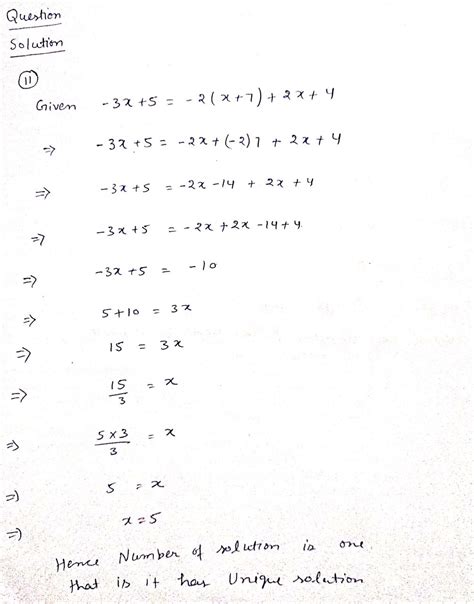 Question
Solution
(11)
Given -3x+5 = -2(x+7)+2x+4
⇒ -3x+5 = -2x+(-2)7 + 2x+4
⇒ -3x+5 = -2x-14 + 2x+4
⇒ -3x+5 = -2x+2x-14+4
⇒ -3x+5 = -10
⇒ 5+10 = 3x
⇒ 15 = 3x
⇒ 15/3 = x
⇒ 5×3/3 = x
⇒ 5 = x
⇒ x=5
Hence Number of solution is one.
that is it has Unique solution